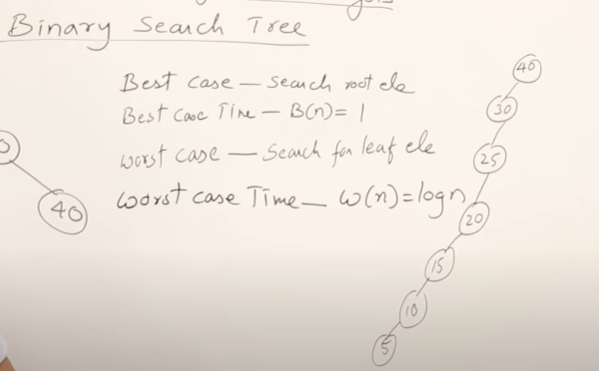 Binary Search Tree
Best case — Search root ele
Best case Time — B(n) = 1
worst case — Search for leaf ele
worst case Time — w(n) = log n
40
40
30
25
20
15
10
5